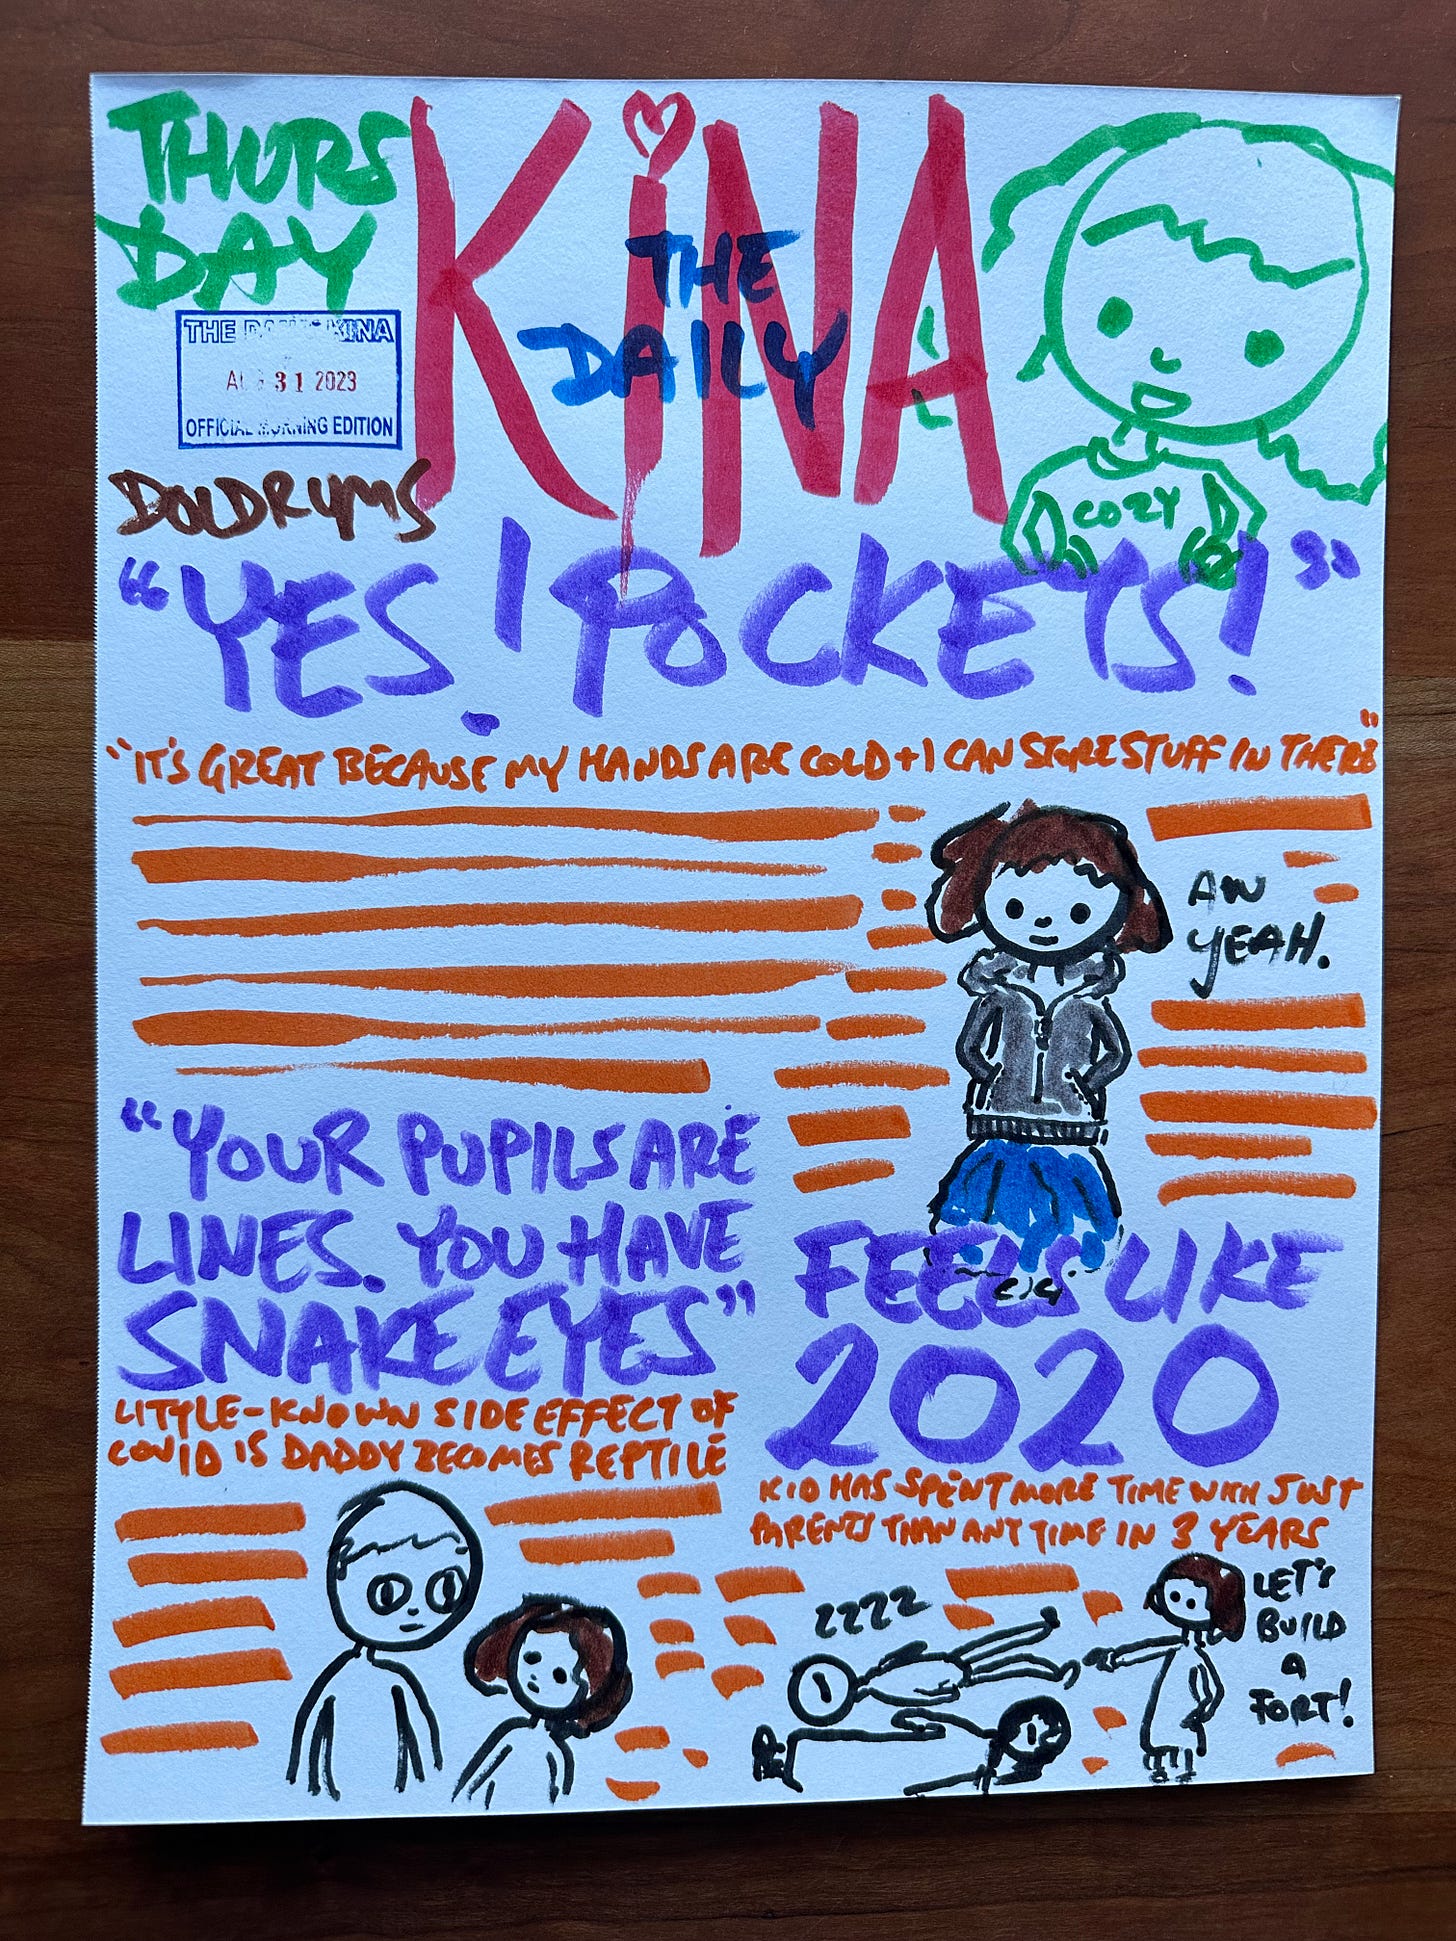 THURS
DAY
KiNA
THE
DAILY
THE KINA
31 2023
OFFICIAL MORNING EDITION
DOLDRUMS
COZY
"YES! POCKETS!"
"IT'S GREAT BECAUSE MY HANDS ARE COLD + I CAN STORE STUFF IN THERE"
AW
YEAH.
"YOUR PUPILS ARE
LINES. YOU HAVE
SNAKE EYES"
LITTLE-KNOWN SIDE EFFECT OF
COVID IS DADDY BECOMES REPTILE
FEELS LIKE
2020
KID HAS SPENT MORE TIME WITH JUST
PARENTS THAN ANY TIME IN 3 YEARS
ZZZZ
LET'S
BUILD
A
FORT!